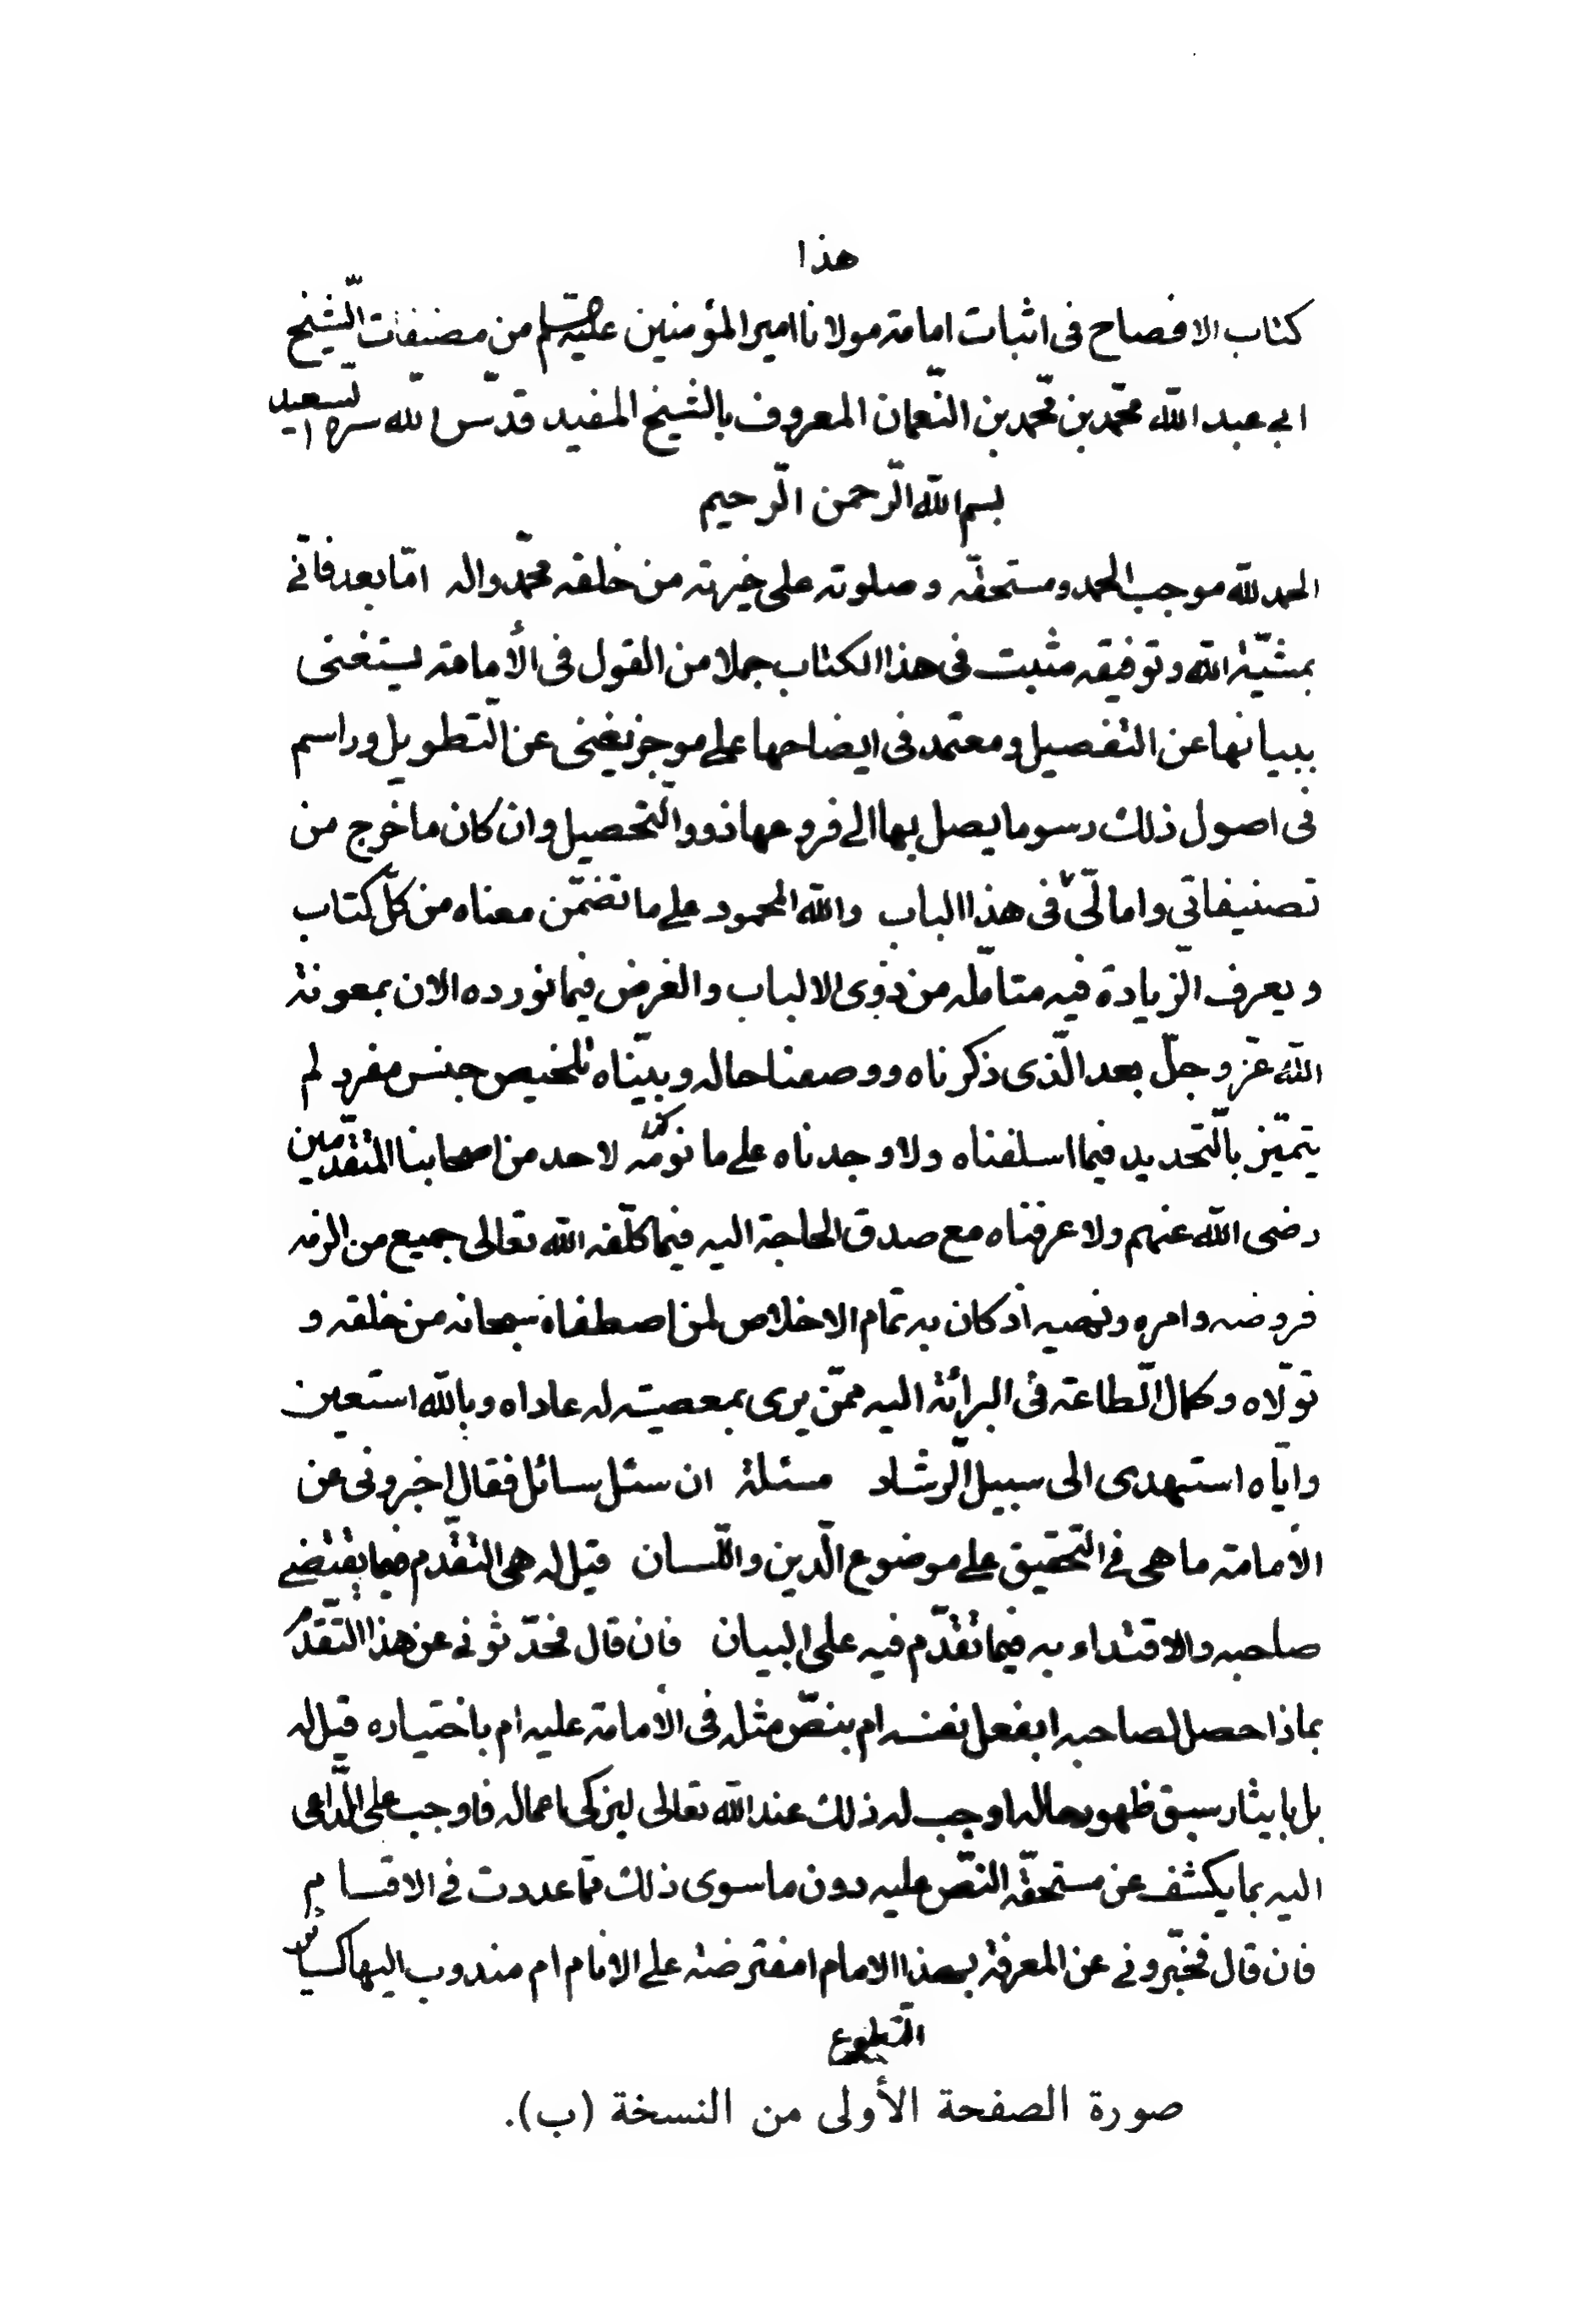 هذا
كتاب الافصاح فى اثبات امامة مولانا امير المؤمنين عليه السلم من مصنفات الشيخ
ابى عبد الله محمّد بن محمّد بن النّعمان المعروف بالشيخ المفيد قدّس الله سره السعيد
بسم الله الرّحمن الرّحيم
الحمد لله موجب الحمد ومستحقّه وصلوته على خيرته من خلقه محمّد واله امّا بعد فانّى
بمشيّة الله وتوفيقه مثبت فى هذا الكتاب جملا من القول فى الأمامة يستغنى
ببيانها عن التفصيل ومعتمد فى ايضاحها على موجز يغنى عن التّطويل وراسم
فى اصول ذلك رسوما يصل بها الى فروعها ذوو التّحصيل وان كان ما خرج من
تصنيفاتى وامالىّ فى هذا الباب والله المحمود على ما تضمّن معناه من كلّ كتاب
ويعرف الزّيادة فيه متامّله من ذوى الالباب والغرض فيما نورده الان بمعونة
الله عزّ وجلّ بعد الّذى ذكرناه ووصفنا حاله وبيّناه تلخيص جنس مفرد لم
يتميّز بالتّحديد فيما اسلفناه ولا وجدناه على ما نومّه لاحد من اصحابنا المتقدّمين
رضى الله عنهم ولا عرفناه مع صدق الحاجة اليه فيما كلّفه الله تعالى جميع من الزمه
فروضه وامره ونهيه اذ كان به تمام الاخلاص لمن اصطفاه سبحانه من خلقه و
تولّاه وكمال الطّاعة فى البرائة اليه ممّن يرى بمعصيته له عاداه وبالله استعين
وايّاه استهدى الى سبيل الرّشاد مسئلة ان سئل سائل فقال اخبرونى عن
الأمامة ما هى فى التّحقيق على موضوع الّدين واللّسان قيل له هى التقدّم فيما يقتضى
صاحبه والاقتداء به فيما تقدّم فيه على البيان فان قال فحدّثونى عن هذا التّقدّم
بماذا حصل لصاحبه ابفعل نفسه ام بنصّ مثله فى الأمامة عليه ام باختياره قيل له
بل بايثار سبق ظهور حاله اوجب له ذلك عند الله تعالى ليزكى اعماله فاوجب على الدّاعى
اليه بما يكشف عن مستحقّه النّصّ عليه دون ما سوى ذلك ممّا عددت فى الاقسام
فان قال فخبّرونى عن المعرفة بهذا الامام امفترضة على الانام ام مندوب اليها كسائر
التّطوع
صورة الصفحة الأولى من النسخة (ب).